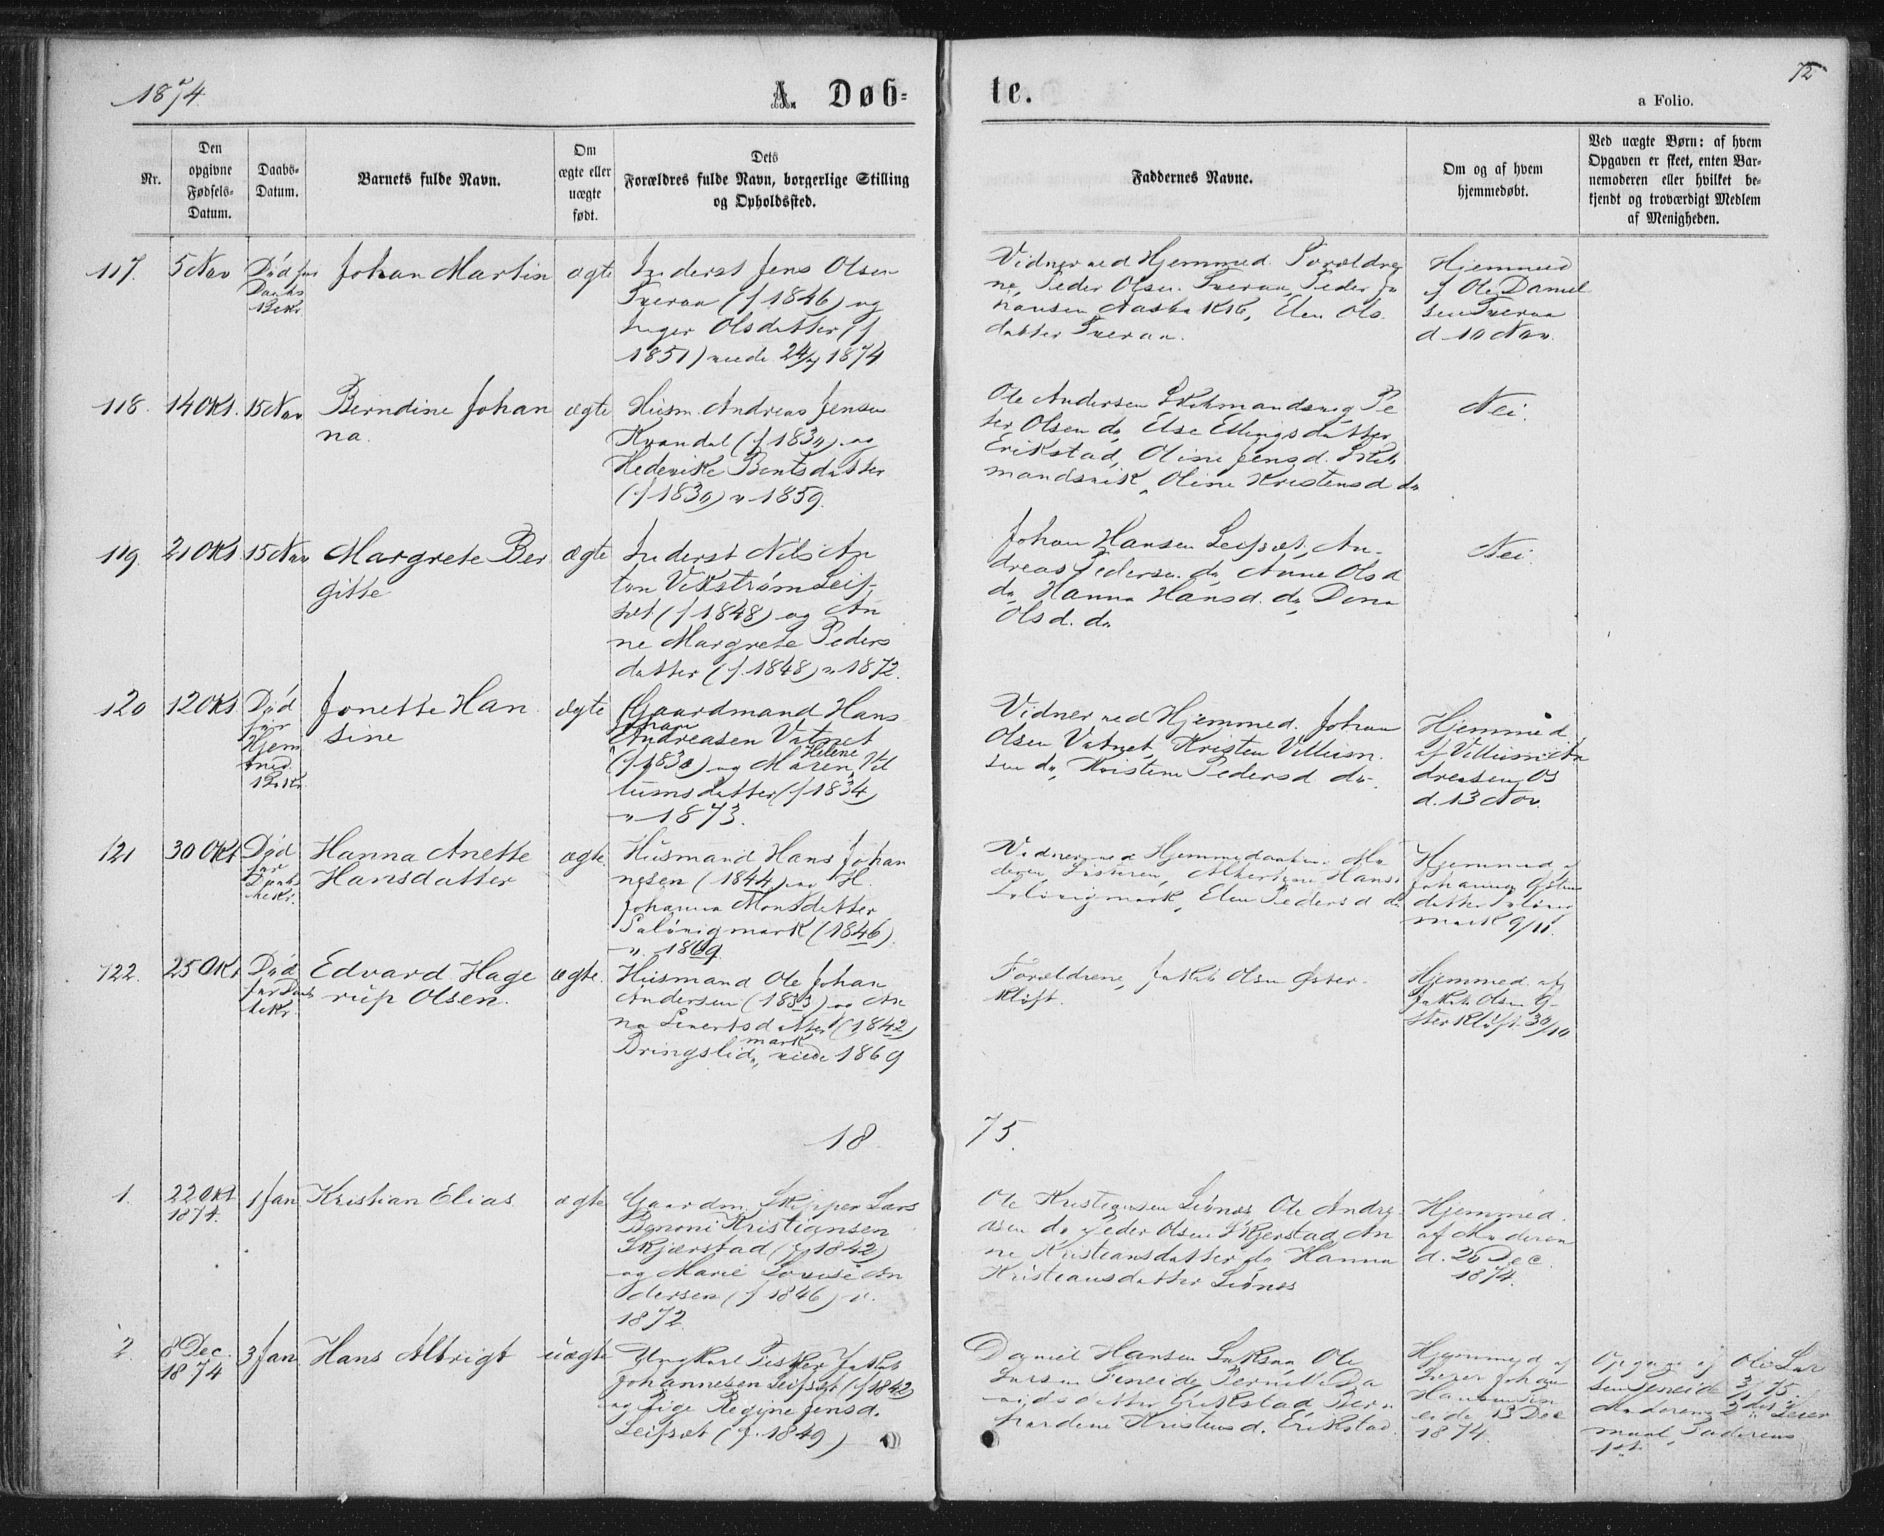 1874
A. Døb-
te.
72
a Folio.
Nr.
Den
opgivne
Fødsels-
Datum.
Daabs-
Datum.
Barnets fulde Navn.
Om
ægte eller
uægte
født.
Dets
Forældres fulde Navn, borgerlige Stilling
og Opholdssted.
Faddernes Navne.
Om og af hvem
hjemmedøbt.
Ved uægte Børn: af hvem
Opgaven er skeet, enten Bar-
nemoderen eller hvilket be-
kjendt og troværdigt Medlem
af Menigheden.
117.
5 Nov
Død før
Daabs
Bekr
Johan Martin
ægte
Inderst Jens Olsen
Tveraa (f 1846) og
Inger Olsdatter (f
1851) viede 24/ 1874
Vidner ved Hjemmed. Forældre
ne, Peder Olsen Tveraa, Peder Jo
hansen, Elen Ols
datter Tveraa.
Hjemmed
af Ole Daniel
sen Tveraa
d 10 Nov.
118.
14 Okt.
15 Nov
Berndine Johan
na.
ægte
Husm. Andreas Jensen
Kvandal (f 1830) og
Hedevike Bentsdatter
(f 1830) v 1859.
Ole Andersen Pe
ter Olsen do, Else Ellingsdatter
Erikstad, Oline Jensd.
mandsvik, Oline Kristensd do
Nei.
119.
21 Okt.
15 Nov
Margrete Ber
gitte
ægte
Inderst Nils An
ton Vikstrøm Leif
set (f 1848) og An
ne Margrete Peders
datter (f. 1848) v. 1872.
Johan Hansen Leifset, An-
dreas Pedersen do, Anne Olsd
do, Hanna Hansd. do, Dona
Olsd. do
Nei.
120
12 Okt
Død
før
Hjem
med.
Bekr.
Jonette Han
sine
ægte
Gaardmand Hans
Johan
Andreasen Vatnet
Helene
(f 1830) og Maren Vil
lumsdatter (f 1834)
v 1873.
Vidner ved Hjemmed. Johan
Olsen Vatnet, Kristen Villum
sen do, Kristine Pedersd do.
Hjemmed.
af Villum An
dreasen Os
d. 13 Nov.
121
30 Okt
Død
før
Daabs
bekr.
Hanna Anette
Hansdatter
ægte.
Husmand Hans Johan
nesen (1844) og H.
Johanna Monsdatter
Saløvigmark (1846).
v. 1869
Vidner ved Hjemmedaaben. Mo
deren, Søsteren, Albertine Hansd
Saløvigmark, Elen Pedersd do
Hjemmed af
Johanna
datter
mark 9/11.
122.
25 Okt
Død
før Daabs
bekr.
Edvard Hage
rup Olsen.
ægte.
Husmand Ole Johan
Andersen (1833) og An
na Sivertsdatter (1842)
mark
Bringslid, viede 1869
Forældrene, Jakob Olsen Øster
kløft.
Hjemmed. af
Jakob Olsen Ø-
sterkløft 30/10
18
75.
1.
22 Okt
1874.
1 Jan
Kristian Elias
ægte
Gaardm. Skipper Lars
Benoni Kristiansen
Skjærstad (f 1842)
og Marie Lovise An
dersen (f 1846) v.
1872.
Ole Kristiansen Liønes, Ole Andre
asen do, Peder Olsen Skjerstad, An
ne Kristiansdatter do, Hanna
Kristiansdatter Liønes
Hjemmed.
af Moderen
d. 20 Dec.
1874.
2.
8 Dec.
1874
3 Jan
Hans Albrigt
uægte
Ungkarl Fisker Jakob
Johannesen Leifset (f 1842)
og Pige Regine Jensd.
Leifset (f. 1849)
Daniel Hansen, Ole
Larsen Feneide, Pernille Da
nielsdatter Erikstad, Bern
hardine Kristensd. Erikstad.
Hjemmed af
Johan
Hansen Fen
eide 13 Dec
1874.
Opgave af Ole Lar
sen Feneide 3/1 75.
Moderens 2det Leier
maal, Faderens
1ste